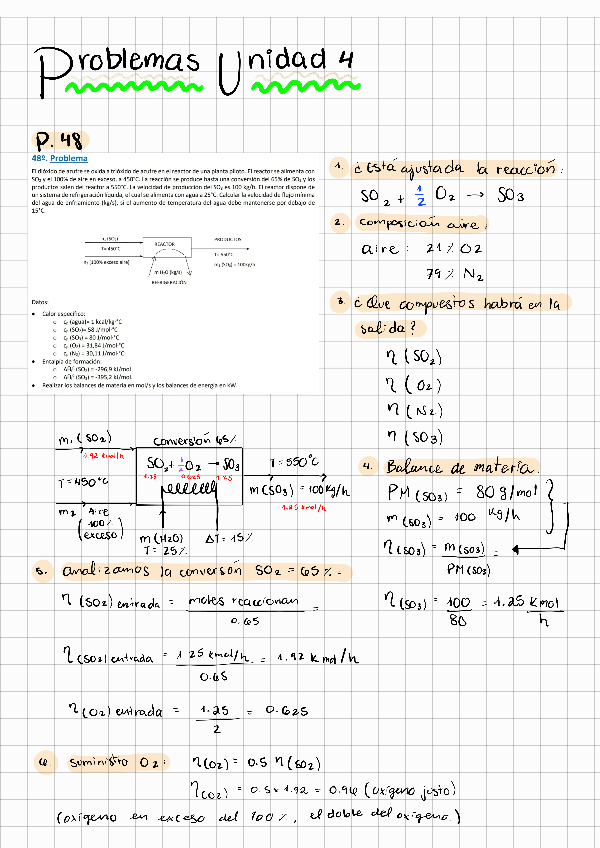 Problemas Unidad 4
P. 48
48º. Problema
El dióxido de azufre se oxida a trióxido de azufre en el reactor de una planta piloto. El reactor se alimenta con
SO₂ y el 100% de aire en exceso, a 450°C. La reacción se produce hasta una conversión del 65% de SO₂ y los
productos salen del reactor a 550°C. La velocidad de producción del SO₃ es 100 kg/h. El reactor dispone de
un sistema de refrigeración líquida, el cual se alimenta con agua a 25°C. Calcular la velocidad de flujo mínima
del agua de enfriamiento (kg/s), si el aumento de temperatura del agua debe mantenerse por debajo de
15°C.
m₁ (SO₂)
T= 450°C
m₂ (100% exceso aire)
REACTOR
m H₂O (kg/s)
REFRIGERACIÓN
PRODUCTOS
T= 550°C
m₃ (SO₃) = 100kg/h
Datos:
• Calor específico:
o cₚ (agua)= 1 kcal/kg·°C
o cₚ (SO₂)= 58 J/mol·°C
o cₚ (SO₃) = 80 J/mol·°C
o cₚ (O₂) = 31,84 J/mol·°C
o cₚ (N₂) = 30,11 J/mol·°C
• Entalpía de formación:
o ΔĤf° (SO₂) = -296,9 kJ/mol
o ΔĤf° (SO₃) = -395,2 kJ/mol
• Realizar los balances de materia en mol/s y los balances de energía en kW.
1. ¿Está ajustada la reacción:
SO₂ + 1/2 O₂ → SO₃
2. Composición aire:
aire: 21% O2
79% N₂
3. ¿Que compuestos habrá en la
salida?
η (SO₂)
η (O₂)
η (N₂)
η (SO₃)
m₁ (SO₂)
1.92 kmol/h
T = 450°C
m₂ Aire
(100% exceso)
conversión 65%
SO₂ + 1/2 O₂ → SO₃
1.25 0.625 1.25
m(H₂O)
T = 25%
ΔT = 15%
T = 550°C
m(SO₃) = 100 kg/h
1.25 kmol/h
4. Balance de materia.
PM (SO₃) = 80 g/mol
m (SO₃) = 100 kg/h
η(SO₃) = m(SO₃) / PM(SO₃) =
η(SO₃) = 100/80 = 1.25 Kmol/h
5. analizamos la conversón SO₂ = 65%.
η (SO₂) entrada = moles reaccionan / 0.65 =
η (SO₃) entrada = 1.25 kmol/h / 0.65 = 1.92 Kmol/h
η (O₂) entrada = 1.25 / 2 = 0.625
6. suministro O₂: η(O₂) = 0.5 η(SO₂)
η(O₂) = 0.5 x 1.92 = 0.96 (oxígeno justo)
(oxígeno en exceso del 100%, el doble del oxígeno.)